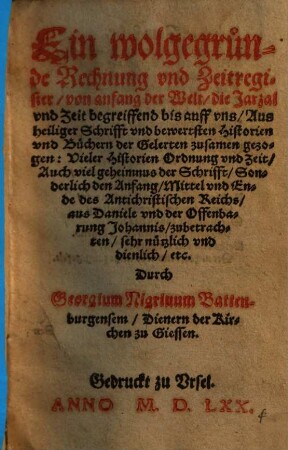 Ein wolgegrün-
de Rechnung vnd Zeitregi-
ster / von anfang der Welt / die Jarzal
vnd Zeit begreiffend bis auff vns / Aus
heiliger Schrifft vnd bewertsten Historien
vnd Büchern der Gelerten zusamen gezo-
gen: Vieler Historien Ordnung vnd Zeit /
Auch viel geheimnus der Schrifft / Son-
derlich den Anfang / Mittel vnd En-
de des Antichristischen Reichs /
aus Daniele vnd der Offenba-
rung Johannis / zubetrach-
ten / sehr nützlich vnd
dienlich / etc.
Durch
Georgium Nigrinum Batten-
burgensem / Dienern der Kir-
chen zu Giessen.
Gedruckt zu Vrsel.
ANNO M. D. LXX.